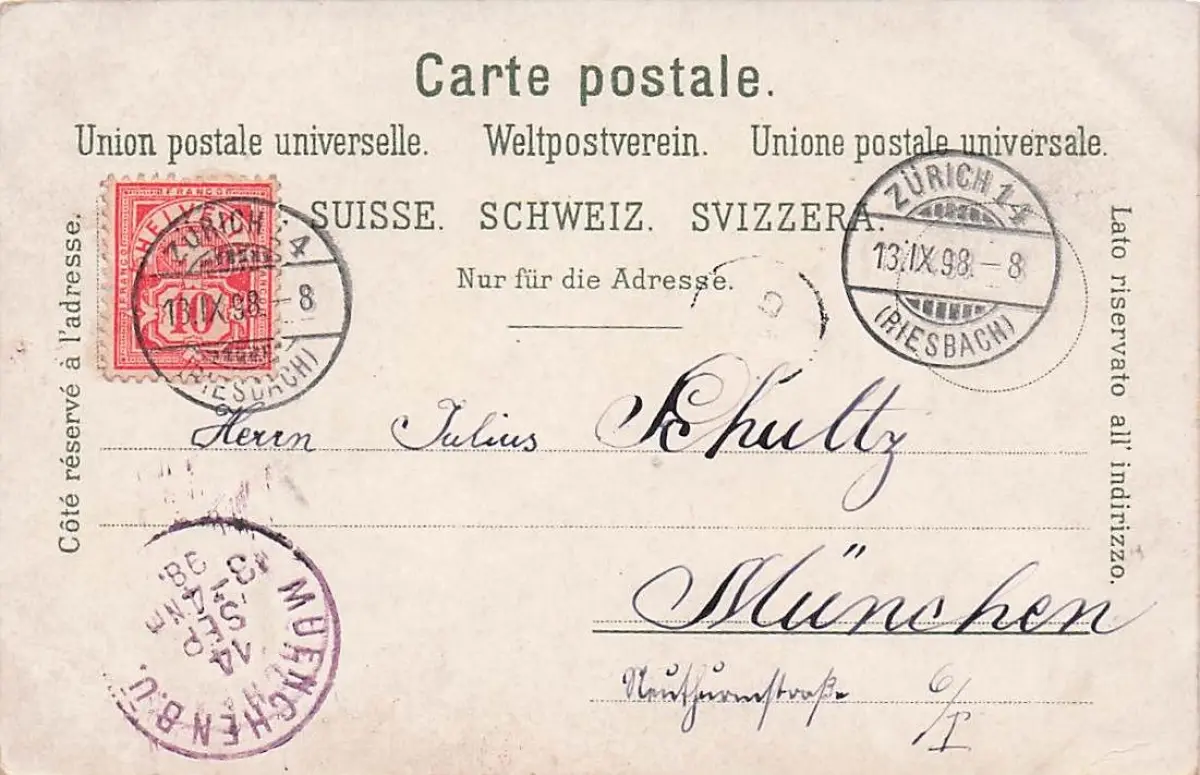 Carte postale.
Union postale universelle. Weltpostverein. Unione postale universale.
SUISSE. SCHWEIZ. SVIZZERA.
Nur für die Adresse.
Côté réservé à l'adresse.
Lato riservato all' indirizzo.
FRANCO
HELVETIA
10
ZÜRICH 14
13.IX.98.–8
(RIESBACH)
ZÜRICH 14
13.IX.98.–8
(RIESBACH)
Herrn Julius Schultz
München
Neuthurmstraße 6/I
MUENCHEN B.U.
14
SEP
4 Nm
98.